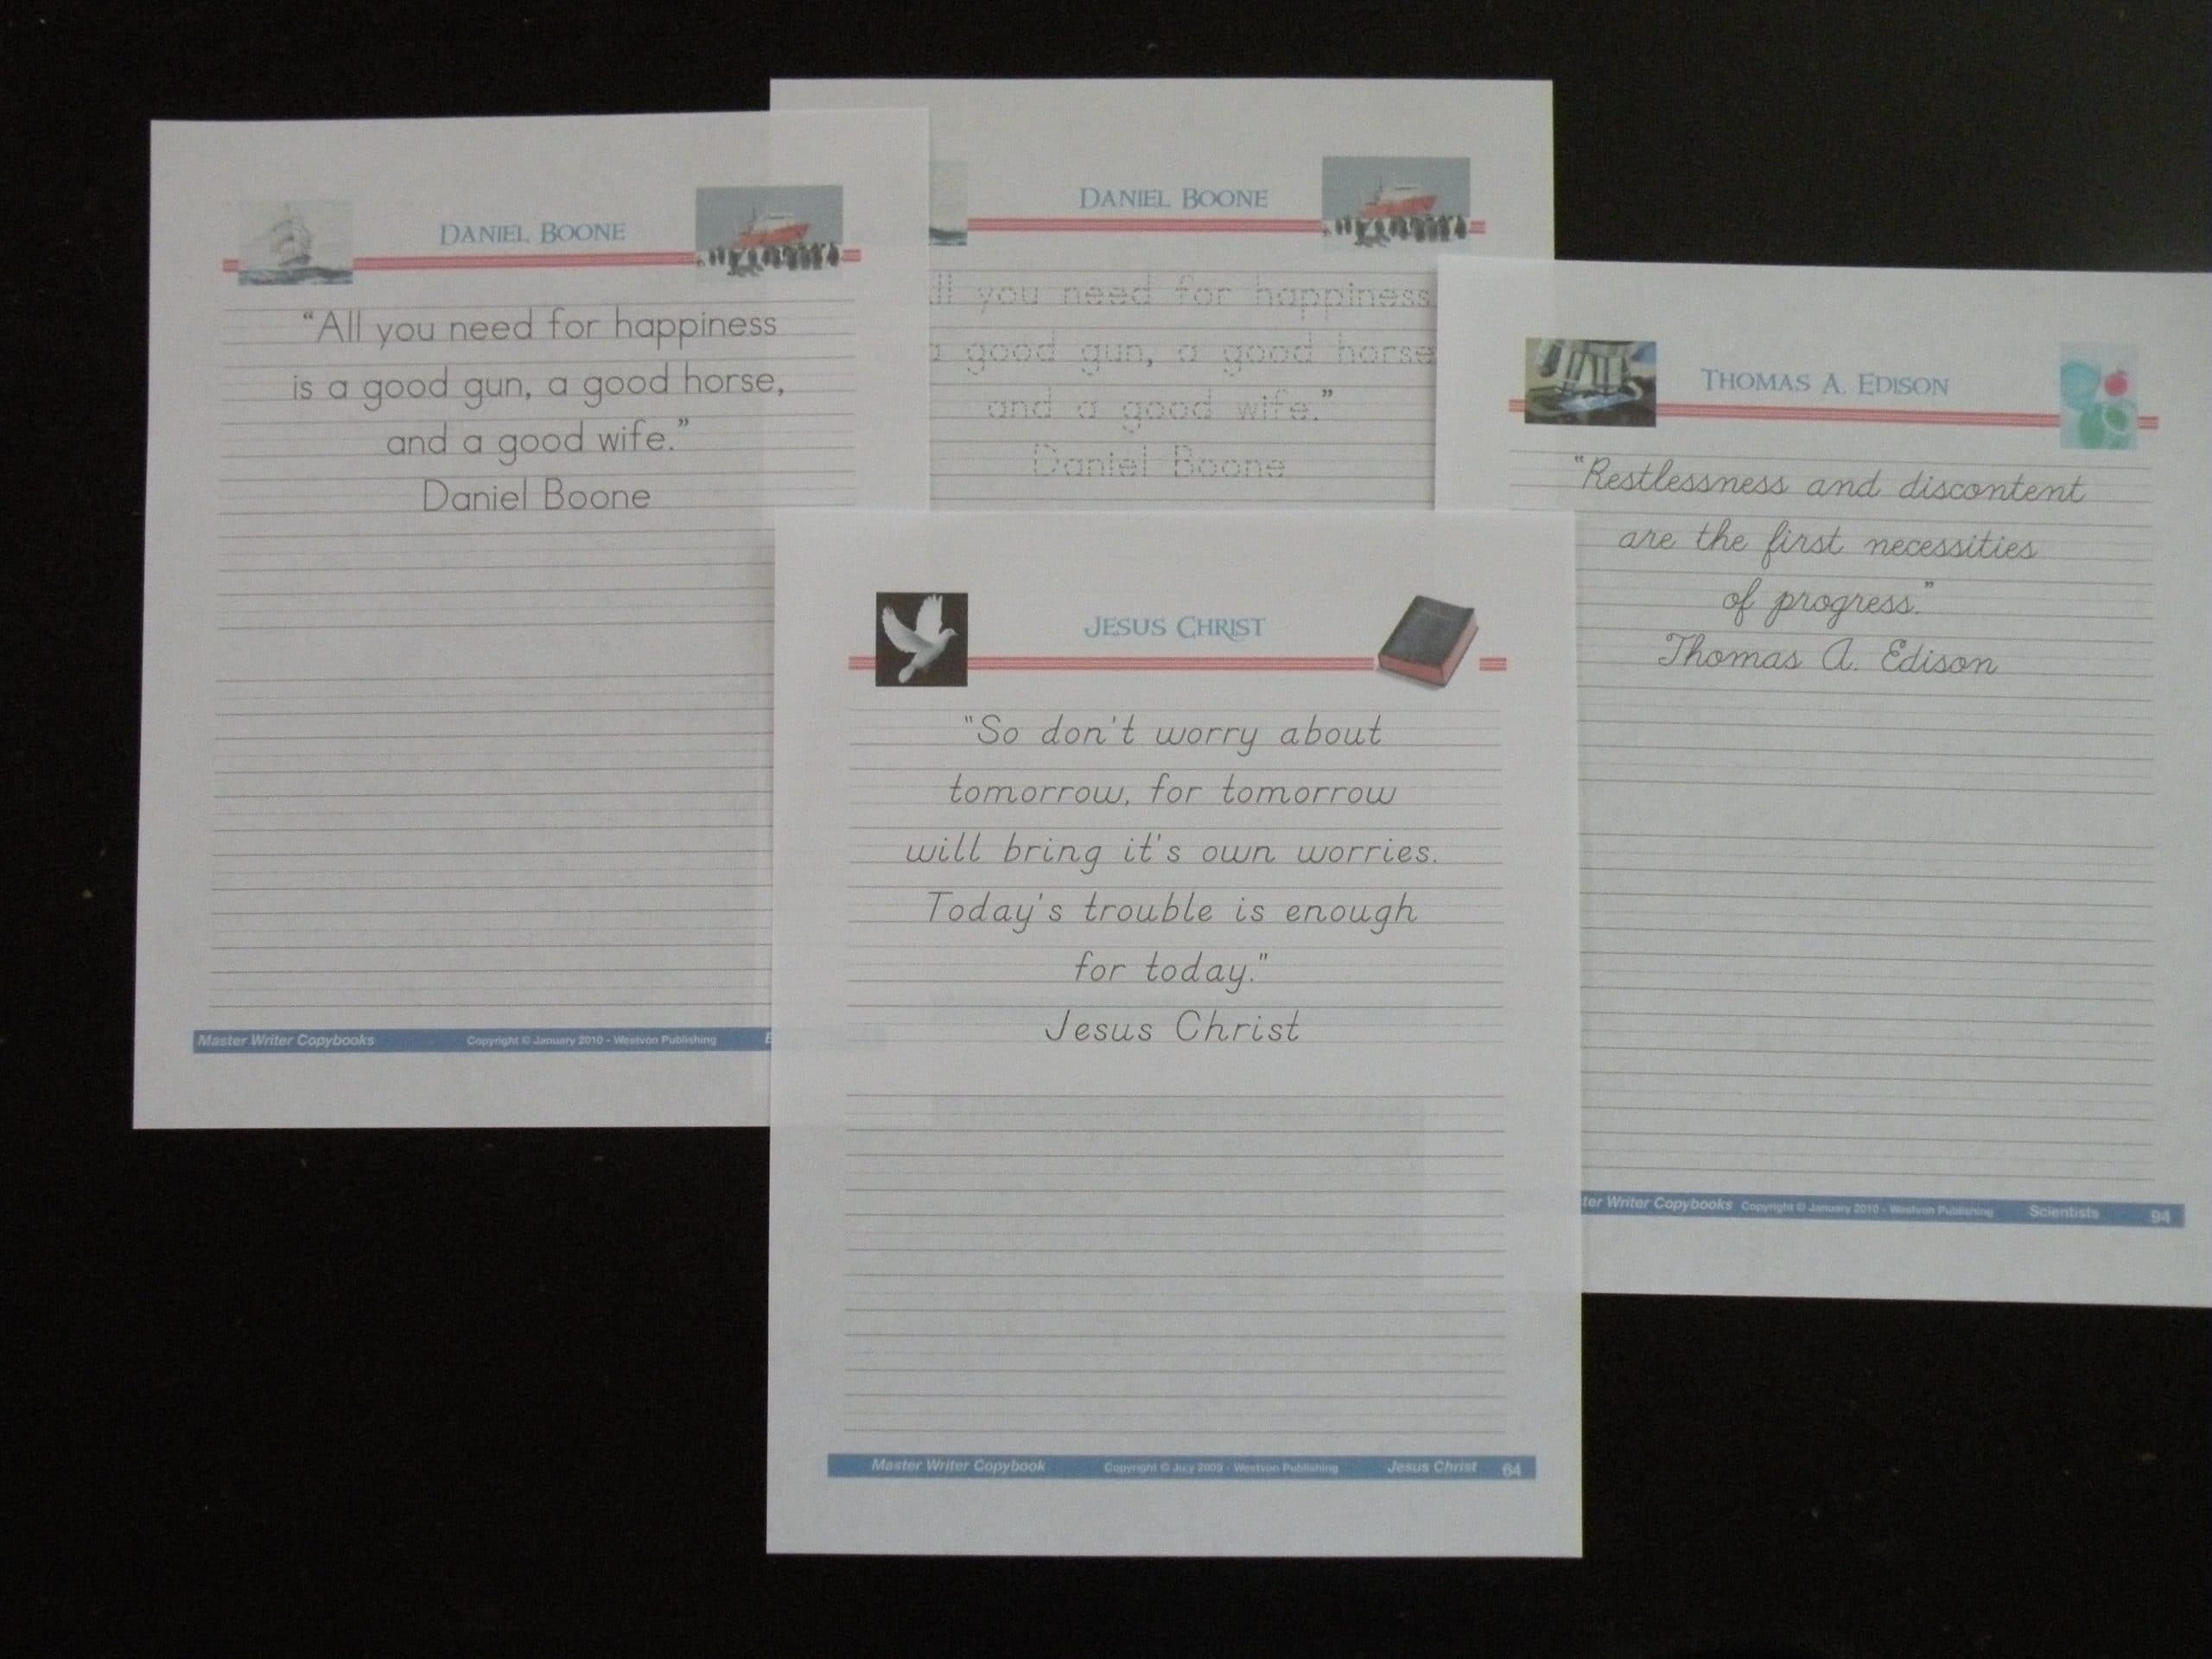 DANIEL BOONE
“All you need for happiness
is a good gun, a good horse,
and a good wife.”
Daniel Boone
Master Writer Copybooks Copyright © January 2010 - Westvon Publishing
DANIEL BOONE
you need for happiness
good gun, a good horse
and a good wife.”
Daniel Boone
THOMAS A. EDISON
“Restlessness and discontent
are the first necessities
of progress.”
Thomas A. Edison
Writer Copybooks Copyright © January 2010 - Westvon Publishing Scientists 94
JESUS CHRIST
"So don't worry about
tomorrow, for tomorrow
will bring it's own worries.
Today's trouble is enough
for today."
Jesus Christ
Master Writer Copybook Copyright © July 2009 - Westvon Publishing Jesus Christ 64